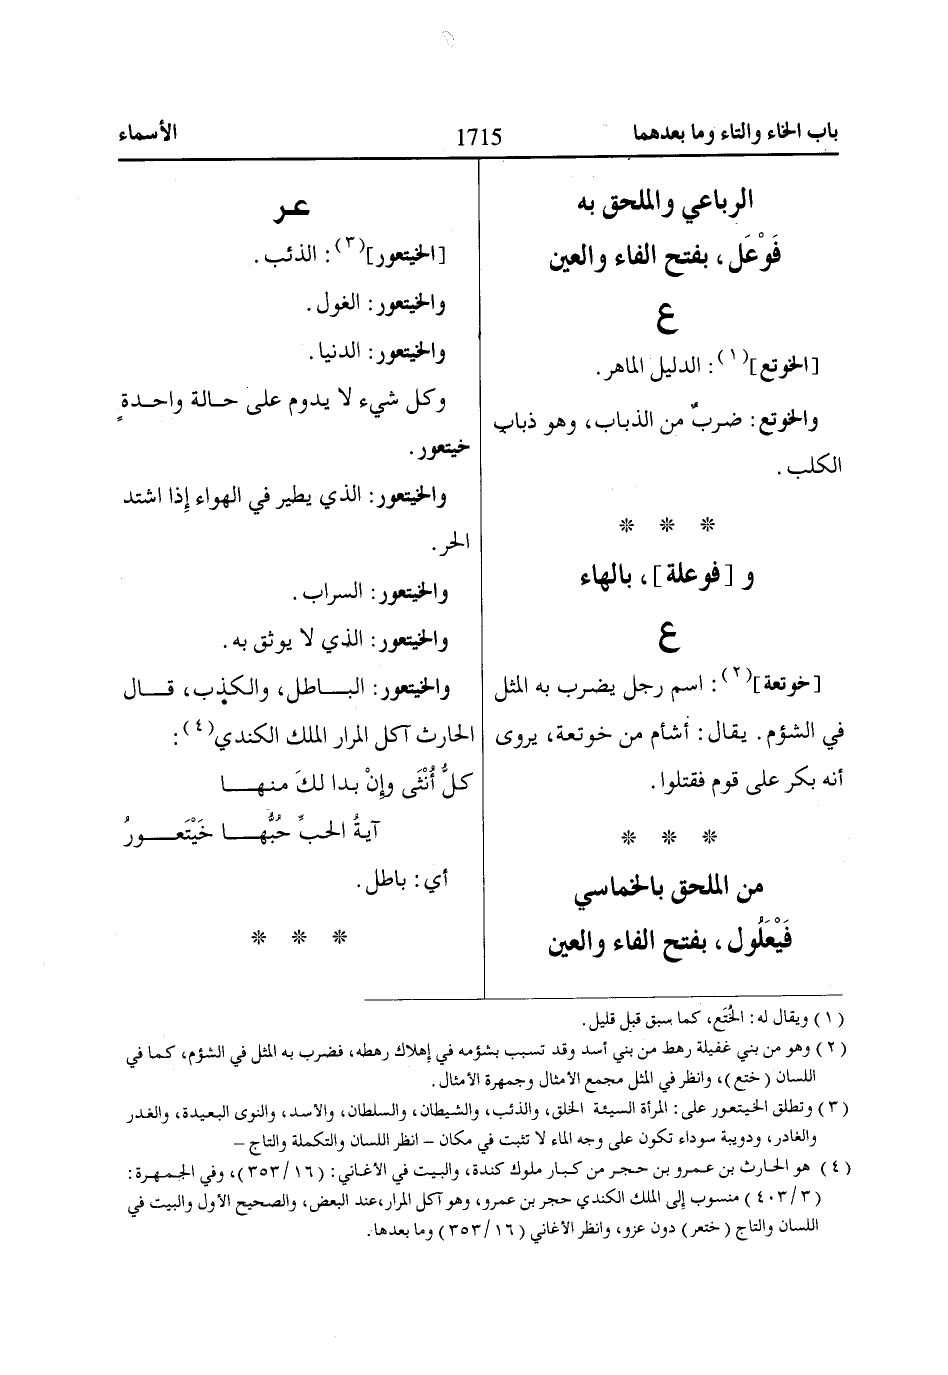 باب الخاء والتاء وما بعدهما
1715
الأسماء
الرباعي والملحق به
فَوْعَل، بفتح الفاء والعين
ع
[الخوتع](١): الدليل الماهر.
والخوتع: ضربٌ من الذباب، وهو ذباب
الكلب.
* * *
و [فوعلة]، بالهاء
ع
[خوتعة](٢): اسم رجل يضرب به المثل
في الشؤم. يقال: أشأم من خوتعة، يروى
أنه بكر على قوم فقتلوا.
* * *
من الملحق بالخماسي
فَيْعَلُول، بفتح الفاء والعين
عر
[الخيتعور](٣): الذئب.
والخيتعور: الغول.
والخيتعور: الدنيا.
وكل شيء لا يدوم على حالة واحدةٍ
خيتعور.
والخيتعور: الذي يطير في الهواء إذا اشتد
الحر.
والخيتعور: السراب.
والخيتعور: الذي لا يوثق به.
والخيتعور: الباطل، والكذب، قال
الحارث آكل المرار الملك الكندي(٤):
كلُّ أُنْثَى وإنْ بدا لكَ منها
آيةُ الحبِّ حُبُّها خَيْتَعورُ
أي: باطل.
* * *
(١) ويقال له: الخُتَع، كما سبق قبل قليل.
(٢) وهو من بني غفيلة رهط من بني أسد وقد تسبب بشؤمه في إهلاك رهطه، فضرب به المثل في الشؤم، كما في
اللسان (ختع)، وانظر في المثل مجمع الأمثال وجمهرة الأمثال.
(٣) وتطلق الخيتعور على: المرأة السيئة الخلق، والذئب، والشيطان، والسلطان، والأسد، والنوى البعيدة، والغدر
والغادر، ودويبة سوداء تكون على وجه الماء لا تثبت في مكان – انظر اللسان والتكملة والتاج –
(٤) هو الحارث بن عمرو بن حجر من كبار ملوك كندة، والبيت في الأغاني: (١٦/٣٥٣)، وفي الجمهرة:
(٣/٤٠٣) منسوب إلى الملك الكندي حجر بن عمرو، وهو آكل المرار، عند البعض، والصحيح الأول والبيت في
اللسان والتاج (ختعر) دون عزو، وانظر الأغاني (١٦/٣٥٣) وما بعدها.